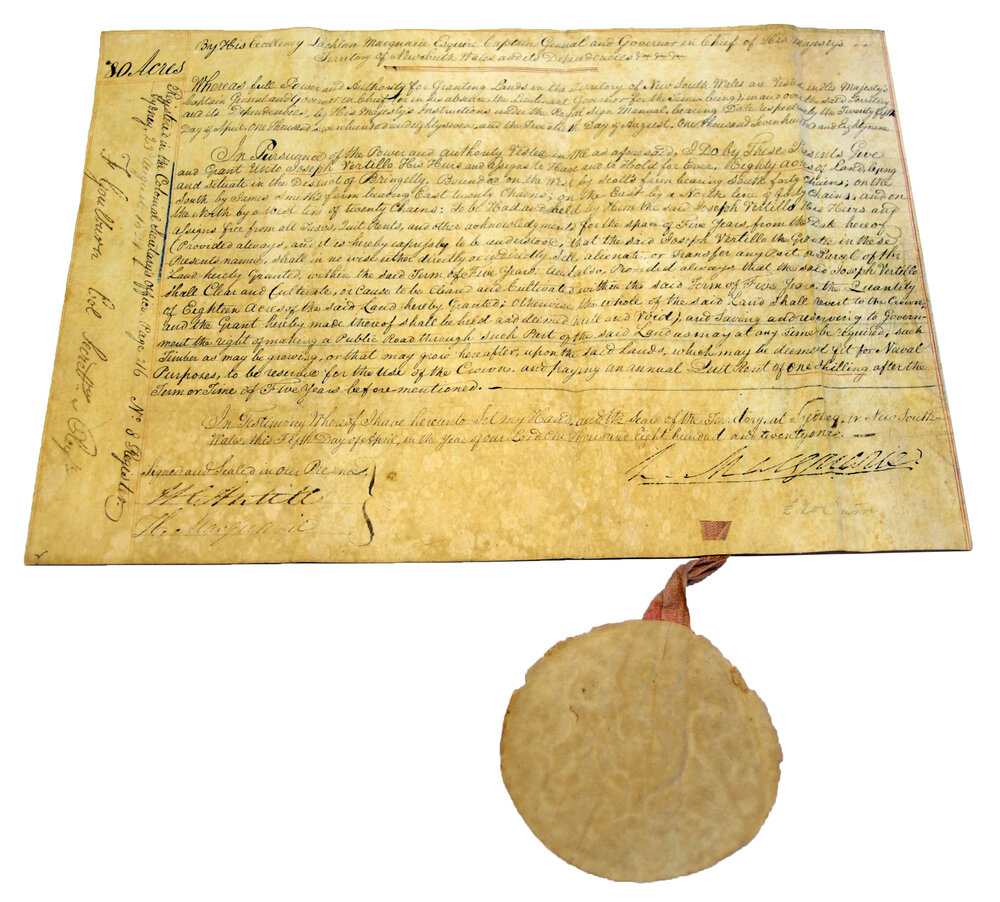 80 Acres
By His Excellency Lachlan Macquarie Esquire Captain General and Governor in Chief of His Majesty's
Territory of New South Wales and its Dependencies
Whereas full Power and Authority for Granting Lands in the Territory of New South Wales are Vested in His Majesty's
Captain General and Governor in Chief (or in his absence the Lieutenant Governor for the time being) in and over the said Territory
and its Dependencies, by His Majesty's Instructions under the Royal Sign Manual, bearing Date respectively the Twenty Fifth
Day of April, One thousand seven hundred and eighty seven, and the Twentieth Day of August, One thousand seven hundred and Eighty nine
In Pursuance of the Power and authority Vested in Me as aforesaid, I Do by These Presents Give
and Grant Unto Joseph Vertillo His Heirs and assigns to Have and to Hold for Ever, Eighty acres of Land, lying
and Situate in the District of Bringelly, Bounded on the West by Scott's farm bearing South forty Chains; on the
South by James Smith's farm bearing East twenty Chains; on the East by a North line of forty Chains; and on
the North by a West line of twenty Chains: To be Had and held by Him the said Joseph Vertillo His Heirs and
assigns free from all Taxes, Quit Rents, and other acknowledgments for the space of Five Years, from the Date hereof
(Provided always, and it is hereby expressly to be understood, that the said Joseph Vertillo the Grantee in these
Presents named, shall in no wise either directly or indirectly Sell, alienate, or transfer any Part or Parcel of the
Land hereby Granted, within the said Term of Five Years. And also Provided always that the said Joseph Vertillo
shall Clear and Cultivate, or cause to be Cleared and Cultivated within the said Term of Five Years, the Quantity
of Eighteen Acres of the said Land hereby Granted; Otherwise the whole of the said Land Shall revert to the Crown,
and the Grant hereby made thereof shall be held and deemed Null and Void); and Saving and reserving to Govern-
ment the right of making a Public Road through such Part of the said Land as may at any time be required; such
Timber as may be growing, or that may grow hereafter, upon the said Land, which may be deemed fit for Naval
Purposes, to be reserved for the Use of the Crown, and paying an annual Quit Rent of One Shilling after the
Term or Time of Five Years before mentioned. —
In Testimony Whereof I have hereunto Set my Hand, and the Seal of the Territory, at Sydney, in New South
Wales, this Fifth Day of April, in the Year of our Lord One Thousand Eight Hundred and twenty one. —
Signed and Sealed in our Presence
H C Antill
H. Macquarie
L. Macquarie
Registered in the Colonial Secretary's Office. Page 16 No. 8 Register
Sydney, 23 August 1821
F. Goulburn Col Secretary & Reg.